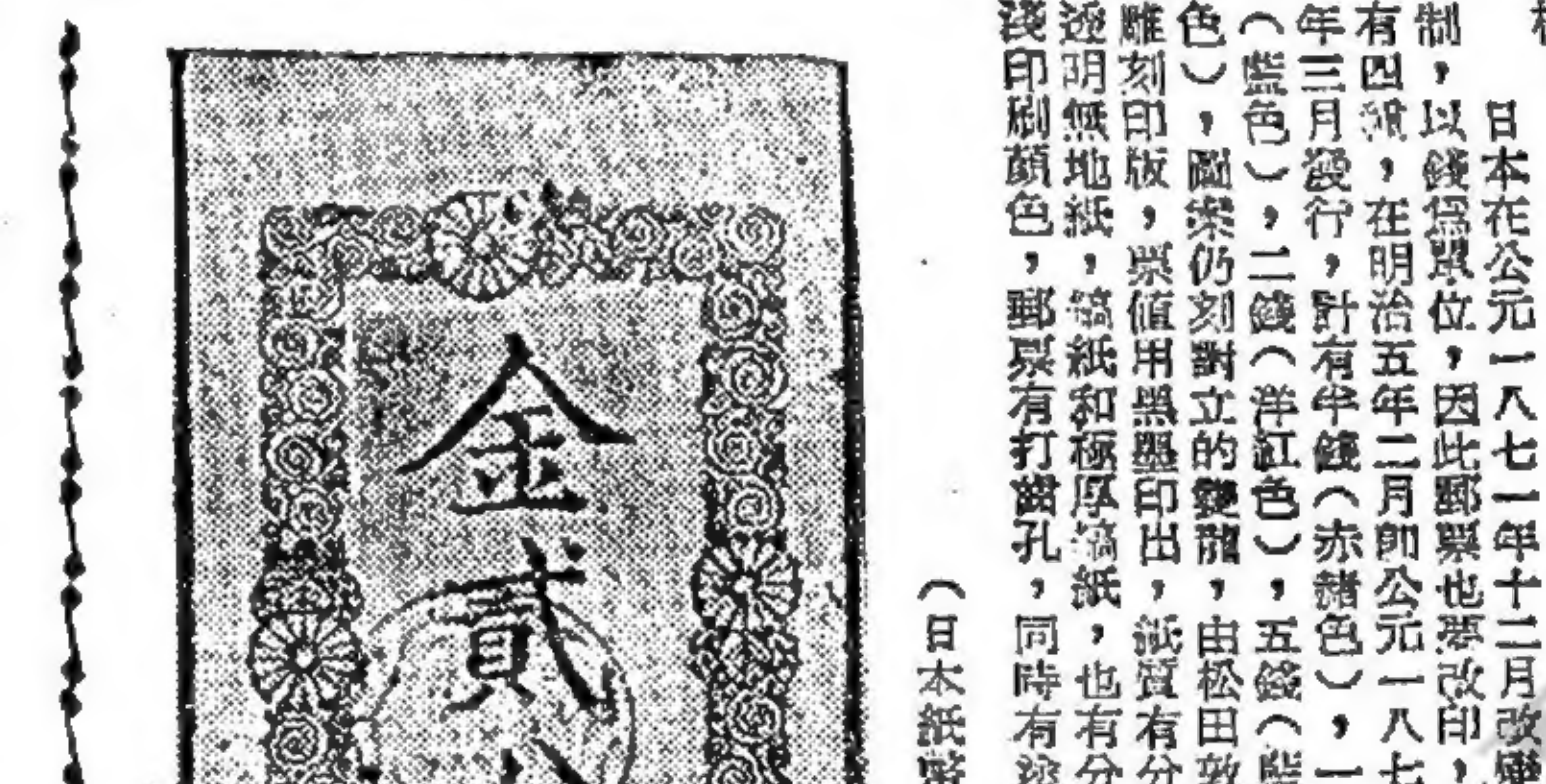 日本在公元一八七一年十二月改
制，以錢爲單位，因此郵票也要改印，
有四種，在明治五年二月卽公元一八七
年三月發行，計有半錢（赤赭色），一
（藍色），二錢（洋紅色），五錢（藍
色），圖案仍刻對立的雙龍，由松田敦
雕刻印版，票值用黑墨印出，紙質有分
透明無地紙，縞紙和極厚縞紙，也有分
淺印刷顏色，郵票有打齒孔，同時有
（日本紙幣
金貳